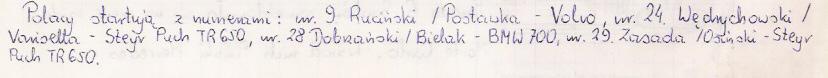 Polacy startują z numerami: nr. 9 Ruciński / Postawka - Volvo, nr. 24. Wędrychowski /
Varisella - Steyr Puch TR 650, nr. 28 Dobrzański / Bielak - BMW 700, nr. 29. Zasada / Osiński - Steyr
Puch TR 650.